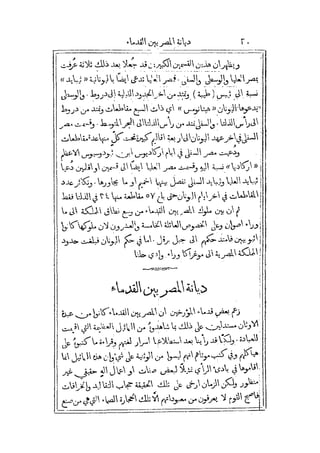 ٢٠ ديانة المصريين القدماء
ويظهر ان هذين القسمين الكبيرين قد جعلا بعد ذلك ثلاثة عُرفت
بمصر العليا والوسطى والسفلى . فمصر العليا تدعى ايضاً باليونانية « ثيبايد »
نسبة الى ثيبس (طيبة) وتمتد من اخر الحدود القبلية الى دروط . والوسطى
يدعوها اليونان « هبتانوميس » اي ذات السبع مقاطعات وتمتد من دروط
الى رأس الدلتا . والسفلى تمتد من رأس الدلتا الى البحر المتوسط . وقسمت مصر
السفلى في اخر عهد اليونان الى اربعة اقاليم كبيرة تحت كل منها عدة مقاطعات
ودعيت مصر السفلى في ايام اركاديوس ابن ثيودوسيوس الاعظم
« اركاديا » نسبة اليه وقسمت مصر العليا ايضاً الى قسمين او اقليمين دُعيا
ثيبايد العليا وثيبايد السفلى تفصل بينها اخميم او ما يجاورها . وتكاثر عدد
المقاطعات في اخر ايام اليونان حتى بلغ ٥٧ مقاطعة منها ٣٤ في الدلتا فقط
ثم ان بين ملوك المصريين القدماء من وسع نطاق المملكة الى ما
وراء اصوان وعلى الخصوص العائلة الخامسة والعشرون لان ملوكها كانوا
اثيوبيين فامتد حكمهم الى جبل برقل . اما في حكم اليونان فبلغت حدود
المملكة المصرية الى موغراكا وراء وادي حلفا
ديانة المصريين القدماء
زعم بعض قدماء المؤرخين ان المصريين القدماء كانوا من عبدة
الاوثان مستدلين على ذلك بما شاهدوه من التماثيل العظيمة التي اقيمت
للعبادة . ولكنا قد رأينا بعد استطلاعنا اسرار لغتهم وقراءة ما كتبوه على
هياكلهم وفي كتب موتاهم انهم ليسوا من الوثنية على شيء وان هذه التماثيل انما
اقاموها في بادئ الرأي تمثيلاً لبعض صفات او اعمال اله حقيقي غير
منظور ولكن الزمان ارخى على تلك الحقيقة حجاب التقاليد والخرافات
فاصبح القوم لا يعرفون من معبوداتهم الا تلك الحجارة الصماء التي هي من صنع